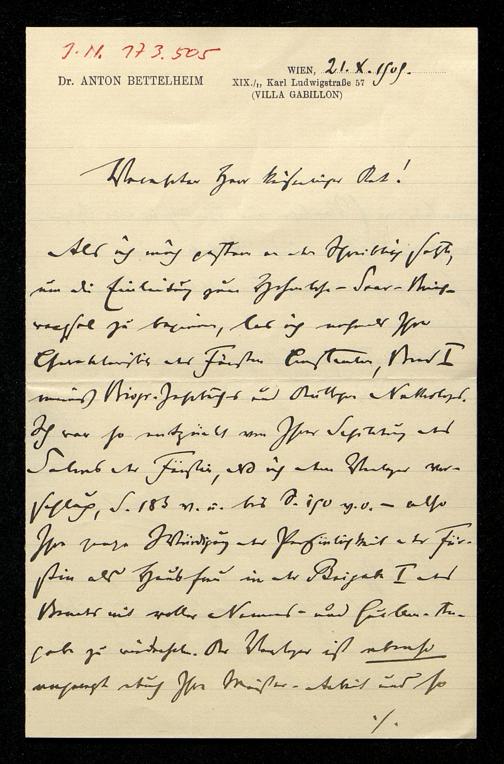 J.N. 173.505
WIEN, 21. X. 1909.
Dr. ANTON BETTELHEIM
XIX./1, Karl Ludwigstraße 57
(VILLA GABILLON)
Verehrter Herr kaiserlicher Rat!
Als ich mich gestern an den Schreibtisch setzte,
um die Einleitung zum Hohenlohe- Brief-
wechsel zu beginnen, las ich nochmals Ihre
Charakteristik des Fürsten Constantin, Band I
meines Biogr. Jahrbuchs und Deutschen Nekrologs.
Ich war so entzückt von Ihrer Schilderung des
Salons der Fürstin, daß ich dem Verleger vor-
schlug, S. 183 v. u. bis S. 190 v. o. – also
Ihre ganze Würdigung der Persönlichkeit der Für-
stin als Hausfrau in der Beigabe I des
Bandes mit voller Namens- und Quellen-An-
gabe zu wiederholen. Der Verleger ist ebenso
angeregt durch Ihre Meister-Arbeit und so
./.